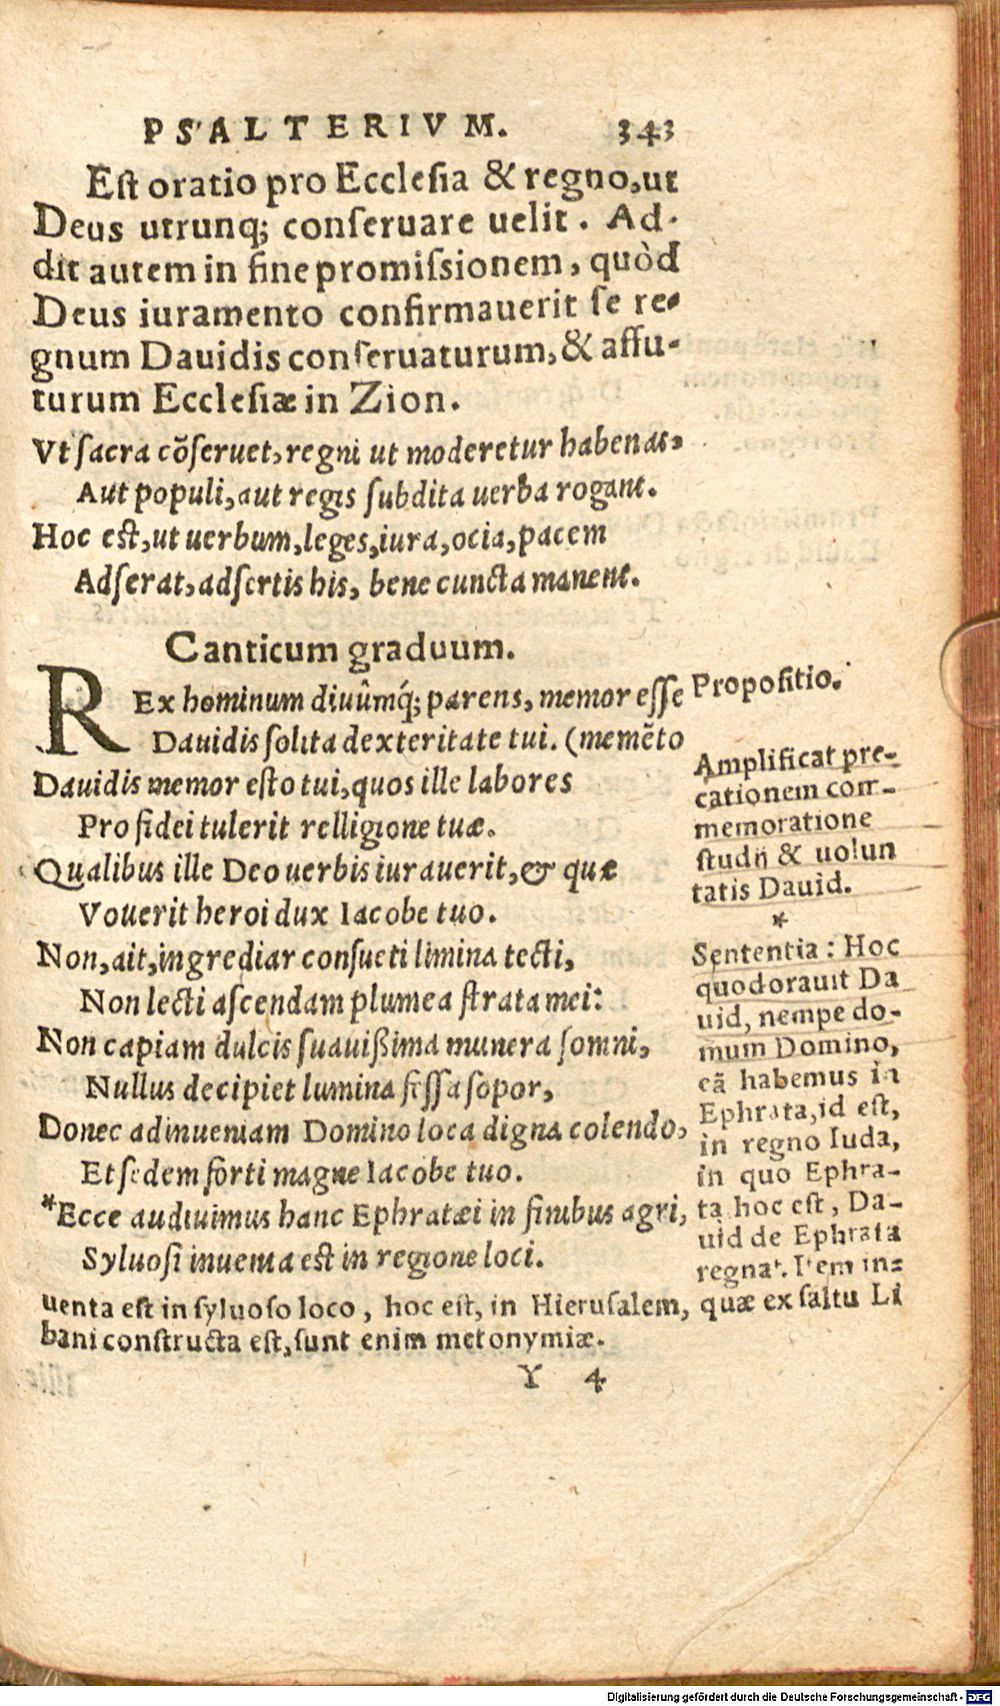 PSALTERIVM. 343
Est oratio pro Ecclesia & regno, ut
Deus utrunq; conseruare uelit. Ad-
dit autem in fine promissionem, quòd
Deus iuramento confirmauerit se re-
gnum Dauidis conseruaturum, & affu-
turum Ecclesiæ in Zion.
Vt sacra cõseruet, regni ut moderetur habenas,
Aut populi, aut regis subdita uerba rogant.
Hoc est, ut uerbum, leges, iura, ocia, pacem
Adserat, adsertis his, bene cuncta manent.
Canticum graduum.
REx hominum diuûmq́; parens, memor esse
Dauidis solita dexteritate tui. (memẽto
Dauidis memor esto tui, quos ille labores
Pro fidei tulerit relligione tuæ.
Qualibus ille Deo uerbis iurauerit, & quæ
Vouerit heroi dux Iacobe tuo.
Non, ait, ingrediar consueti limina tecti,
Non lecti ascendam plumea strata mei:
Non capiam dulcis suauißima munera somni,
Nullus decipiet lumina fessa sopor,
Donec adinueniam Domino loca digna colendo,
Et sedem forti magne Iacobe tuo.
*Ecce audiuimus hanc Ephratæi in finibus agri,
Syluosi inuenta est in regione loci.
Propositio.
Amplificat pre-
cationem com-
memoratione
studij & uolun
tatis Dauid.
*
Sententia: Hoc
quod orauit Da
uid, nempe do-
mum Domino,
eã habemus in
Ephrata, id est,
in regno Iuda,
in quo Ephra-
ta hoc est, Da-
uid de Ephrata
regnat. Item in-
uenta est in syluoso loco, hoc est, in Hierusalem, quæ ex saltu Li
bani constructa est, sunt enim metonymiæ.
Y 4
Digitalisierung gefördert durch die Deutsche Forschungsgemeinschaft - DFG